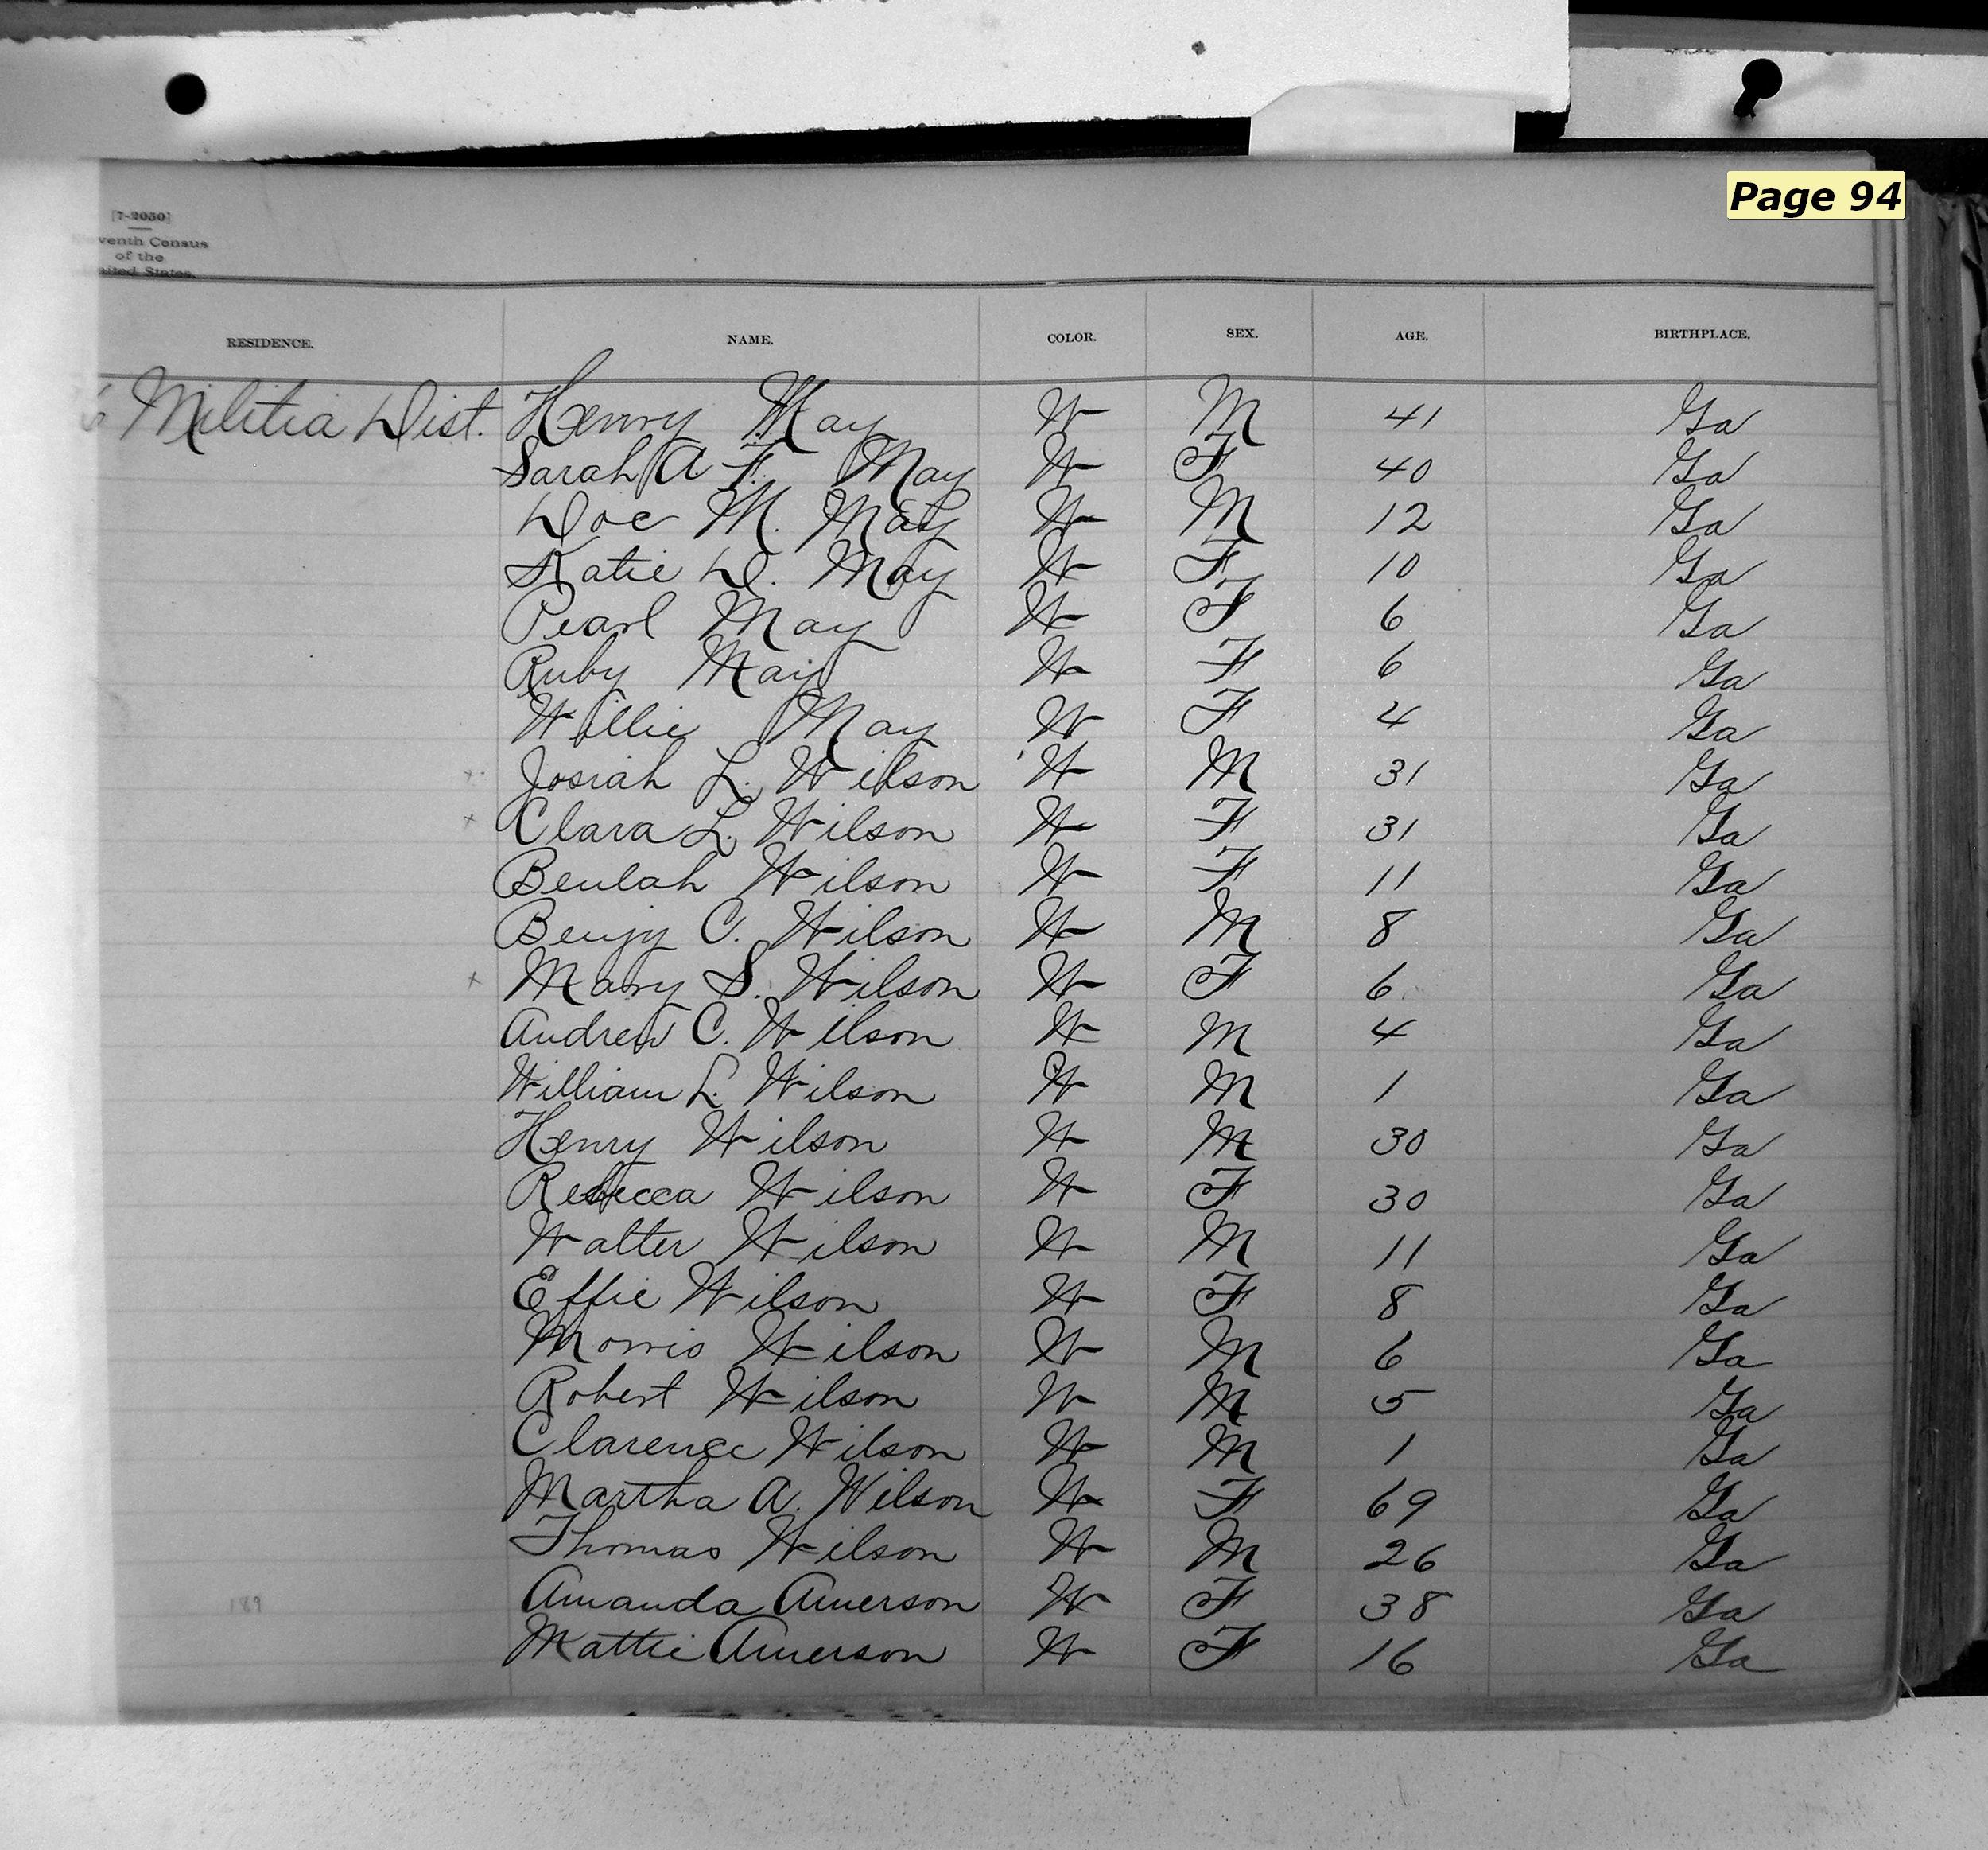 Page 94
[7-2050]
venth Census
of the
nited States.
RESIDENCE. NAME. COLOR. SEX. AGE. BIRTHPLACE.
Militia Dist. Henry May W M 41 Ga
Sarah A F. May W F 40 Ga
Doc M. May W M 12 Ga
Katie D. May W F 10 Ga
Pearl May W F 6 Ga
Ruby May W F 6 Ga
Willie May W F 4 Ga
Josiah L. Wilson W M 31 Ga
Clara L. Wilson W F 31 Ga
Beulah Wilson W F 11 Ga
Benjy C. Wilson W M 8 Ga
Mary S. Wilson W F 6 Ga
Andrew C. Wilson W M 4 Ga
William L. Wilson W M 1 Ga
Henry Wilson W M 30 Ga
Rebecca Wilson W F 30 Ga
Walter Wilson W M 11 Ga
Effie Wilson W F 8 Ga
Morris Wilson W M 6 Ga
Robert Wilson W M 5 Ga
Clarence Wilson W M 1 Ga
Martha A. Wilson W F 69 Ga
Thomas Wilson W M 26 Ga
189 Amanda Amerson W F 38 Ga
Mattie Amerson W F 16 Ga